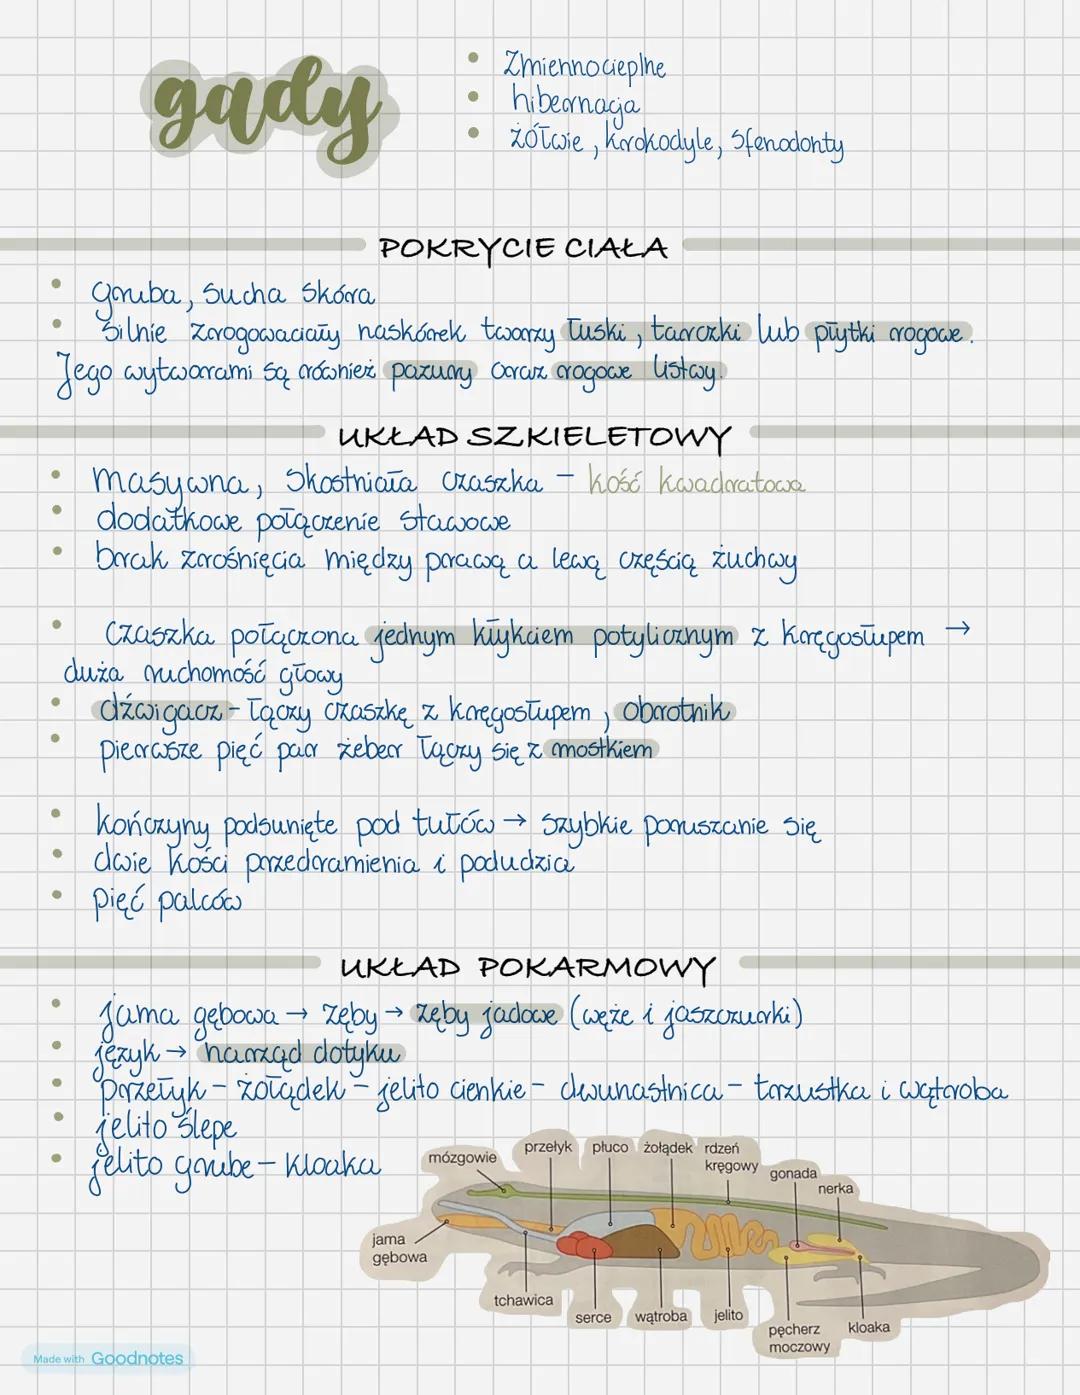 gady
Zmiennocieplne
hibernacja
żółwie, krokodyle, sfenodonty
POKRYCIE CIAŁA
gruba, sucha skóra
silnie zrogowaciały naskórek tworzy łuski, tarczki lub płytki rogowe.
Jego wytworami są również pazury oraz rogowe listwy.
UKŁAD SZKIELETOWY
masywna, skostniała czaszka – kość kwadratowa
dodatkowe połączenie stawowe
brak zrośnięcia między prawą a lewą częścią żuchwy
Czaszka połączona jednym kłykciem potylicznym z kręgosłupem →
duża ruchomość głowy
dźwigacz – łączy czaszkę z kręgosłupem, obrotnik
pierwsze pięć par żeber łączy się z mostkiem
kończyny podsunięte pod tułów → szybkie poruszanie się
dwie kości przedramienia i podudzia
pięć palców
UKŁAD POKARMOWY
jama gębowa → zęby → zęby jadowe (węże i jaszczurki)
język → narząd dotyku
przełyk – żołądek – jelito cienkie – dwunastnica – trzustka i wątroba
jelito ślepe
jelito grube – kloaka
mózgowie
przełyk
płuco
żołądek
rdzeń
kręgowy
gonada
nerka
jama
gębowa
tchawica
serce
wątroba
jelito
pęcherz
moczowy
kloaka
Made with Goodnotes